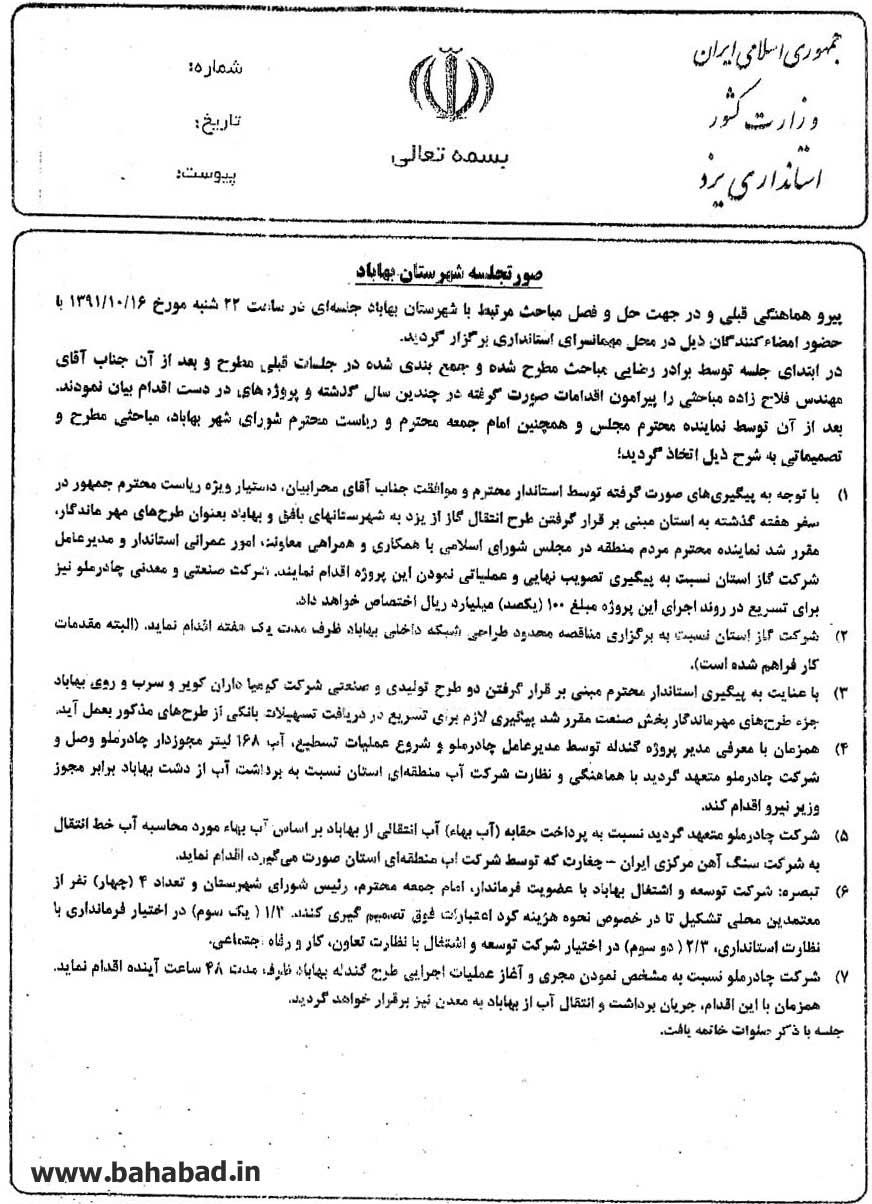 جمهوری اسلامی ایران
وزارت کشور
استانداری یزد
بسمه تعالی
شماره:
تاریخ:
پیوست:
صورتجلسه شهرستان بهاباد
پیرو هماهنگی قبلی و در جهت حل و فصل مباحث مرتبط با شهرستان بهاباد جلسه‌ای در ساعت ۲۲ شنبه مورخ ۱۳۹۱/۱۰/۱۶ با
حضور امضاءکنندگان ذیل در محل مهمانسرای استانداری برگزار گردید.
در ابتدای جلسه توسط برادر رضایی مباحث مطرح شده و جمع بندی شده در جلسات قبلی مطرح و بعد از آن جناب آقای
مهندس فلاح زاده مباحثی را پیرامون اقدامات صورت گرفته در چندین سال گذشته و پروژه‌های در دست اقدام بیان نمودند.
بعد از آن توسط نماینده محترم مجلس و همچنین امام جمعه محترم و ریاست محترم شورای شهر بهاباد، مباحثی مطرح و
تصمیماتی به شرح ذیل اتخاذ گردید؛
۱) با توجه به پیگیری‌های صورت گرفته توسط استاندار محترم و موافقت جناب آقای محرابیان، دستیار ویژه ریاست محترم جمهور در
سفر هفته گذشته به استان مبنی بر قرار گرفتن طرح انتقال گاز از یزد به شهرستانهای بافق و بهاباد بعنوان طرح‌های مهر ماندگار،
مقرر شد نماینده محترم مردم منطقه در مجلس شورای اسلامی با همکاری و همراهی معاونت، امور عمرانی استاندار و مدیرعامل
شرکت گاز استان نسبت به پیگیری تصویب نهایی و عملیاتی نمودن این پروژه اقدام نمایند. شرکت صنعتی و معدنی چادرملو نیز
برای تسریع در روند اجرای این پروژه مبلغ ۱۰۰ (یکصد) میلیارد ریال اختصاص خواهد داد.
۲) شرکت گاز استان نسبت به برگزاری مناقصه محدود طراحی شبکه داخلی بهاباد ظرف مدت یک هفته اقدام نماید. (البته مقدمات
کار فراهم شده است).
۳) با عنایت به پیگیری استاندار محترم مبنی بر قرار گرفتن دو طرح تولیدی و صنعتی شرکت کیمیا داران کویر و سرب و روی بهاباد
جزء طرح‌های مهرماندگار بخش صنعت مقرر شد پیگیری لازم برای تسریع در دریافت تسهیلات بانکی از طرح‌های مذکور بعمل آید.
۴) همزمان با معرفی مدیر پروژه گندله توسط مدیرعامل چادرملو و شروع عملیات تسطیع، آب ۱۶۸ لیتر مجوزدار چادرملو وصل و
شرکت چادرملو متعهد گردید با هماهنگی و نظارت شرکت آب منطقه‌ای استان نسبت به برداشت، آب از دشت بهاباد برابر مجوز
وزیر نیرو اقدام کند.
۵) شرکت چادرملو متعهد گردید نسبت به پرداخت حقابه (آب بهاء) آب انتقالی از بهاباد بر اساس آب بهاء مورد محاسبه آب خط انتقال
به شرکت سنگ آهن مرکزی ایران – چغارت که توسط شرکت اب منطقه‌ای استان صورت می‌گیرد، اقدام نماید.
۶) تبصره: شرکت توسعه و اشتغال بهاباد با عضویت فرماندار، امام جمعه محترم، رئیس شورای شهرستان و تعداد ۴ (چهار) نفر از
معتمدین محلی تشکیل تا در خصوص نحوه هزینه کرد اعتبارات فوق تصمیم گیری کنند. ۱/۳ ( یک سوم) در اختیار فرمانداری با
نظارت استانداری، ۲/۳ ( دو سوم) در اختیار شرکت توسعه و اشتغال با نظارت تعاون، کار و رفاه اجتماعی.
۷) شرکت چادرملو نسبت به مشخص نمودن مجری و آغاز عملیات اجرایی طرح گندله بهاباد ظرف، مدت ۴۸ ساعت آینده اقدام نماید.
همزمان با این اقدام، جریان برداشت و انتقال آب از بهاباد به معدن نیز برقرار خواهد گردید.
جلسه با ذکر صلوات خاتمه یافت.
www.bahabad.in